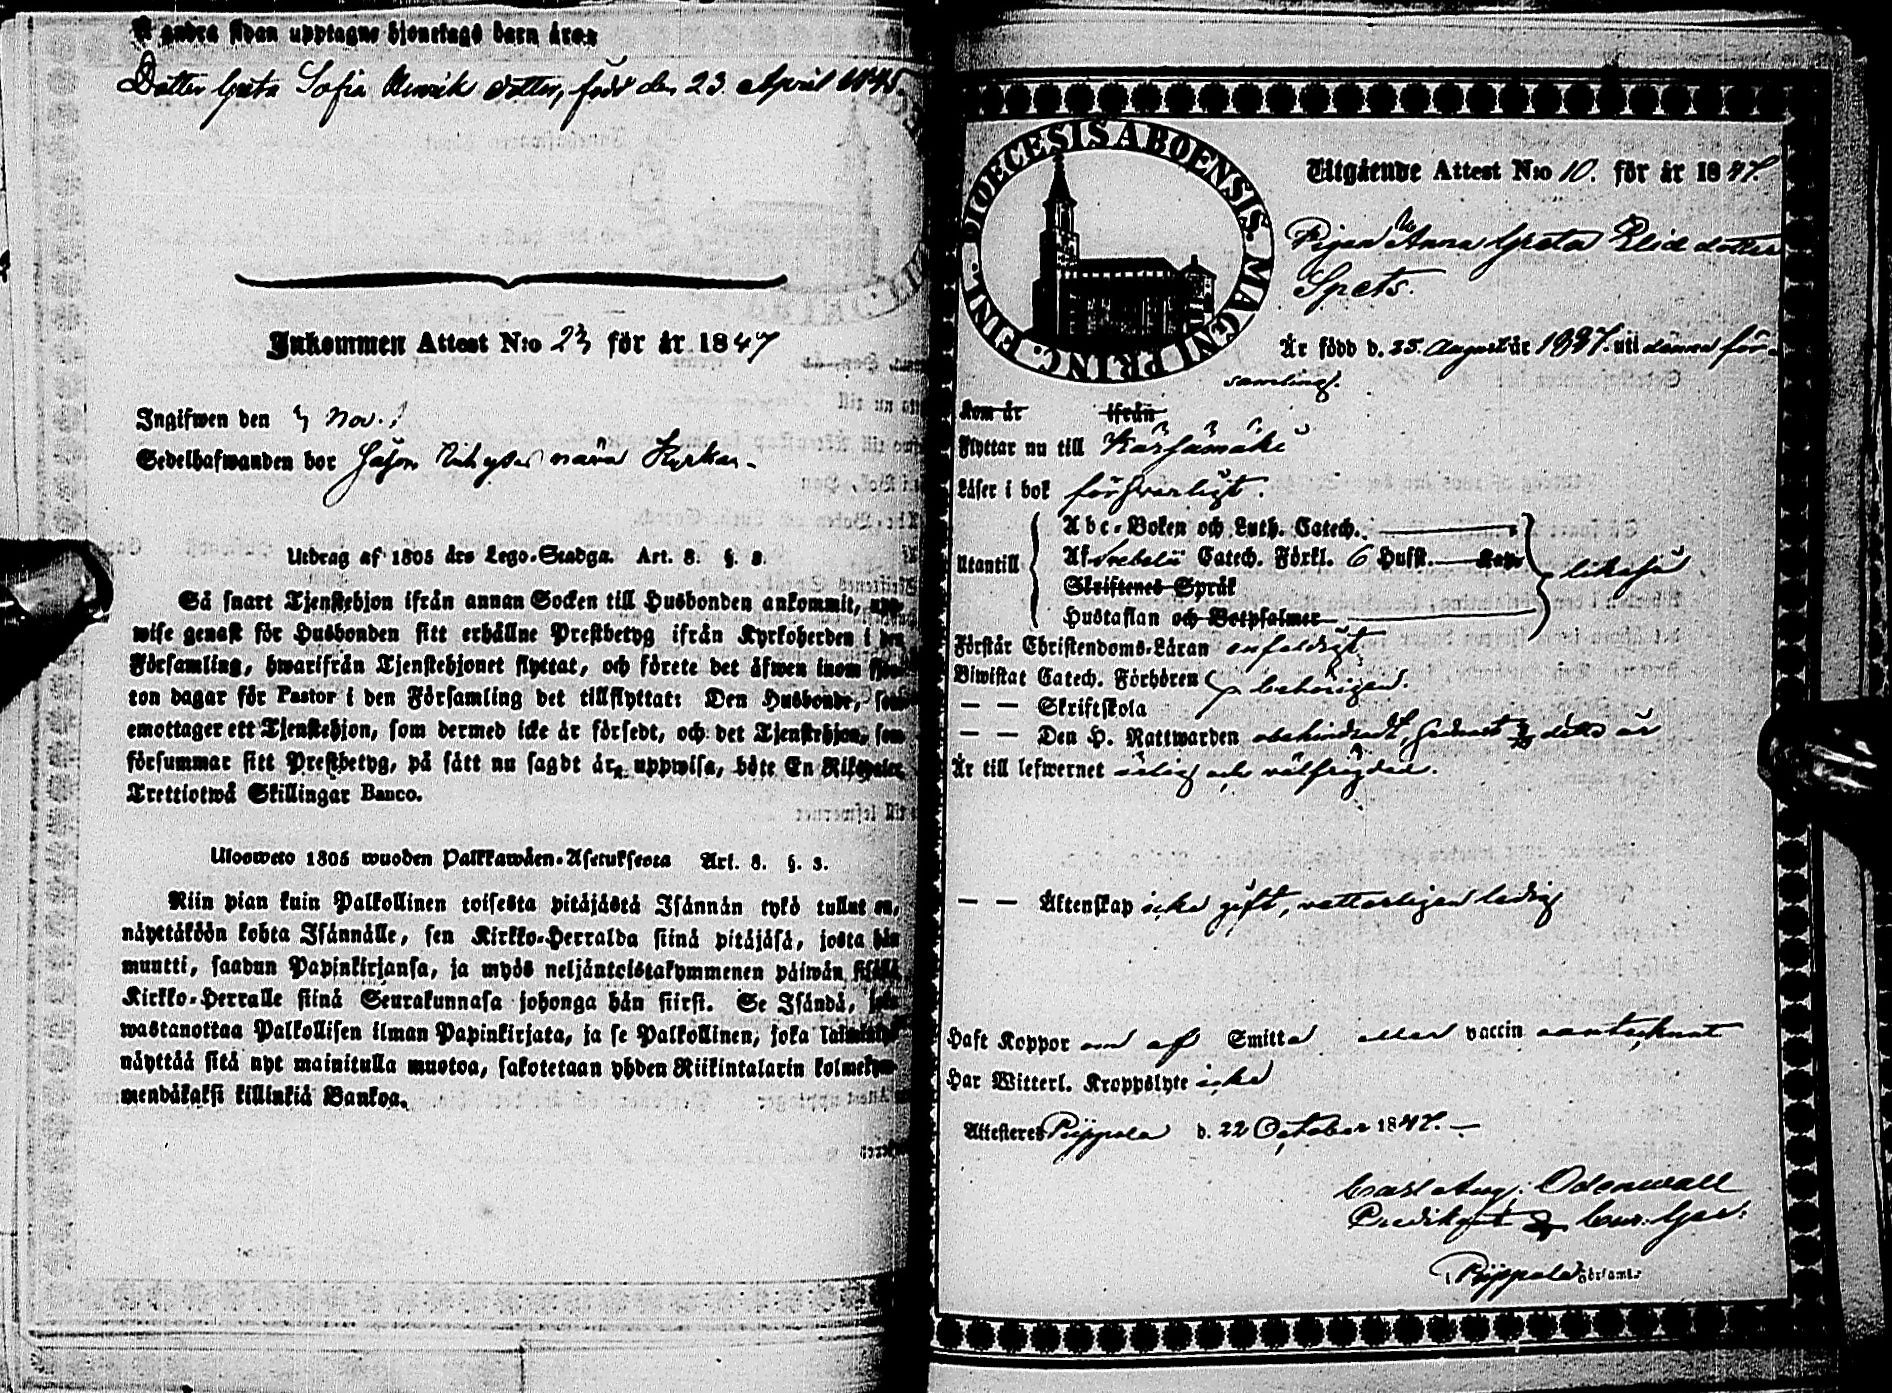 å andra sidan upptagne hjonelags barn äro:
Dotter Greta Sofia Henriks dotter, född den 23 April 1845.
Inkommen Attest N:o 23 för år 1847
Ingifwen den 3 Nov.
Sedelhafwanden bor
Utdrag af 1805 års Lego-Stadga. Art. 8. §. 3.
Så snart Tjenstehjon ifrån annan Socken till Husbonden ankommit, upp-
wise genast för Husbonden sitt erhållne Prestbetyg ifrån Kyrkoherden i den
Församling, hwarifrån Tjenstehjonet flyttat, och förete det äfwen inom fjor-
ton dagar för Pastor i den Församling det tillflyttat: Den Husbonde, som
emottager ett Tjenstehjon, som dermed icke är försedt, och det Tjenstehjon, som
försummar sitt Prestbetyg, på sätt nu sagdt är, uppwisa, böte En Riksdaler
Trettiotwå Skillingar Banco.
Ulosweto 1805 wuoden Palkkawäen-Asetuksesta Art. 8. §. 3.
Niin pian kuin Palkollinen toisesta pitäjästä Isännän tykö tullut on,
näyttäköön kohta Isännälle, sen Kirkko-Herralda siinä pitäjäsä, josta hän
muutti, saadun Papinkirjansa, ja myös neljäntoistakymmenen päiwän sisällä
Kirkko-Herralle siinä Seurakunnasa johonga hän siirsi. Se Isändä, joka
wastanottaa Palkollisen ilman Papinkirjata, ja se Palkollinen, joka laiminlyö
näyttää sitä nyt mainitulla muotoa, sakotetaan yhden Riikintalarin kolmekym-
mendäkaksi killinkiä Bankoa.
DIOECESIS ABOENSIS. MAGNI PRINC. FINL.
Utgående Attest N:o 10. för år 1847.
Pigan Anna Greta Elias dotter
Spets.
Är född d. 25 August år 1827. uti denna för-
samling.
Kom år ifrån
Flyttar nu till Kärsämäki
Läser i bok försvarligt.
Abc-Boken och Luth. Catech.
Utantill Af Svebelii Catech. Förkl. 6 Hufst. Kap: likaså
Skriftenes Språk
Hustaflan och Botpsalmer
Förstår Christendoms-Läran enfaldigt
Biwistat Catech. Förhören behörigen.
— — Skriftskola
— — Den H. Nattwarden obehindradt, sednast detta år
Är till lefwernet ärlig och välfrejdad.
— — Äktenskap icke gift, ledig
Haft Koppor om af Smitta eller vaccin oantecknat
Har Witterl. Kroppslyte icke
Attesteras Pippola d. 22 October 1847.
Carl Aug. Odenwall
Predikant
Pippola Församl.